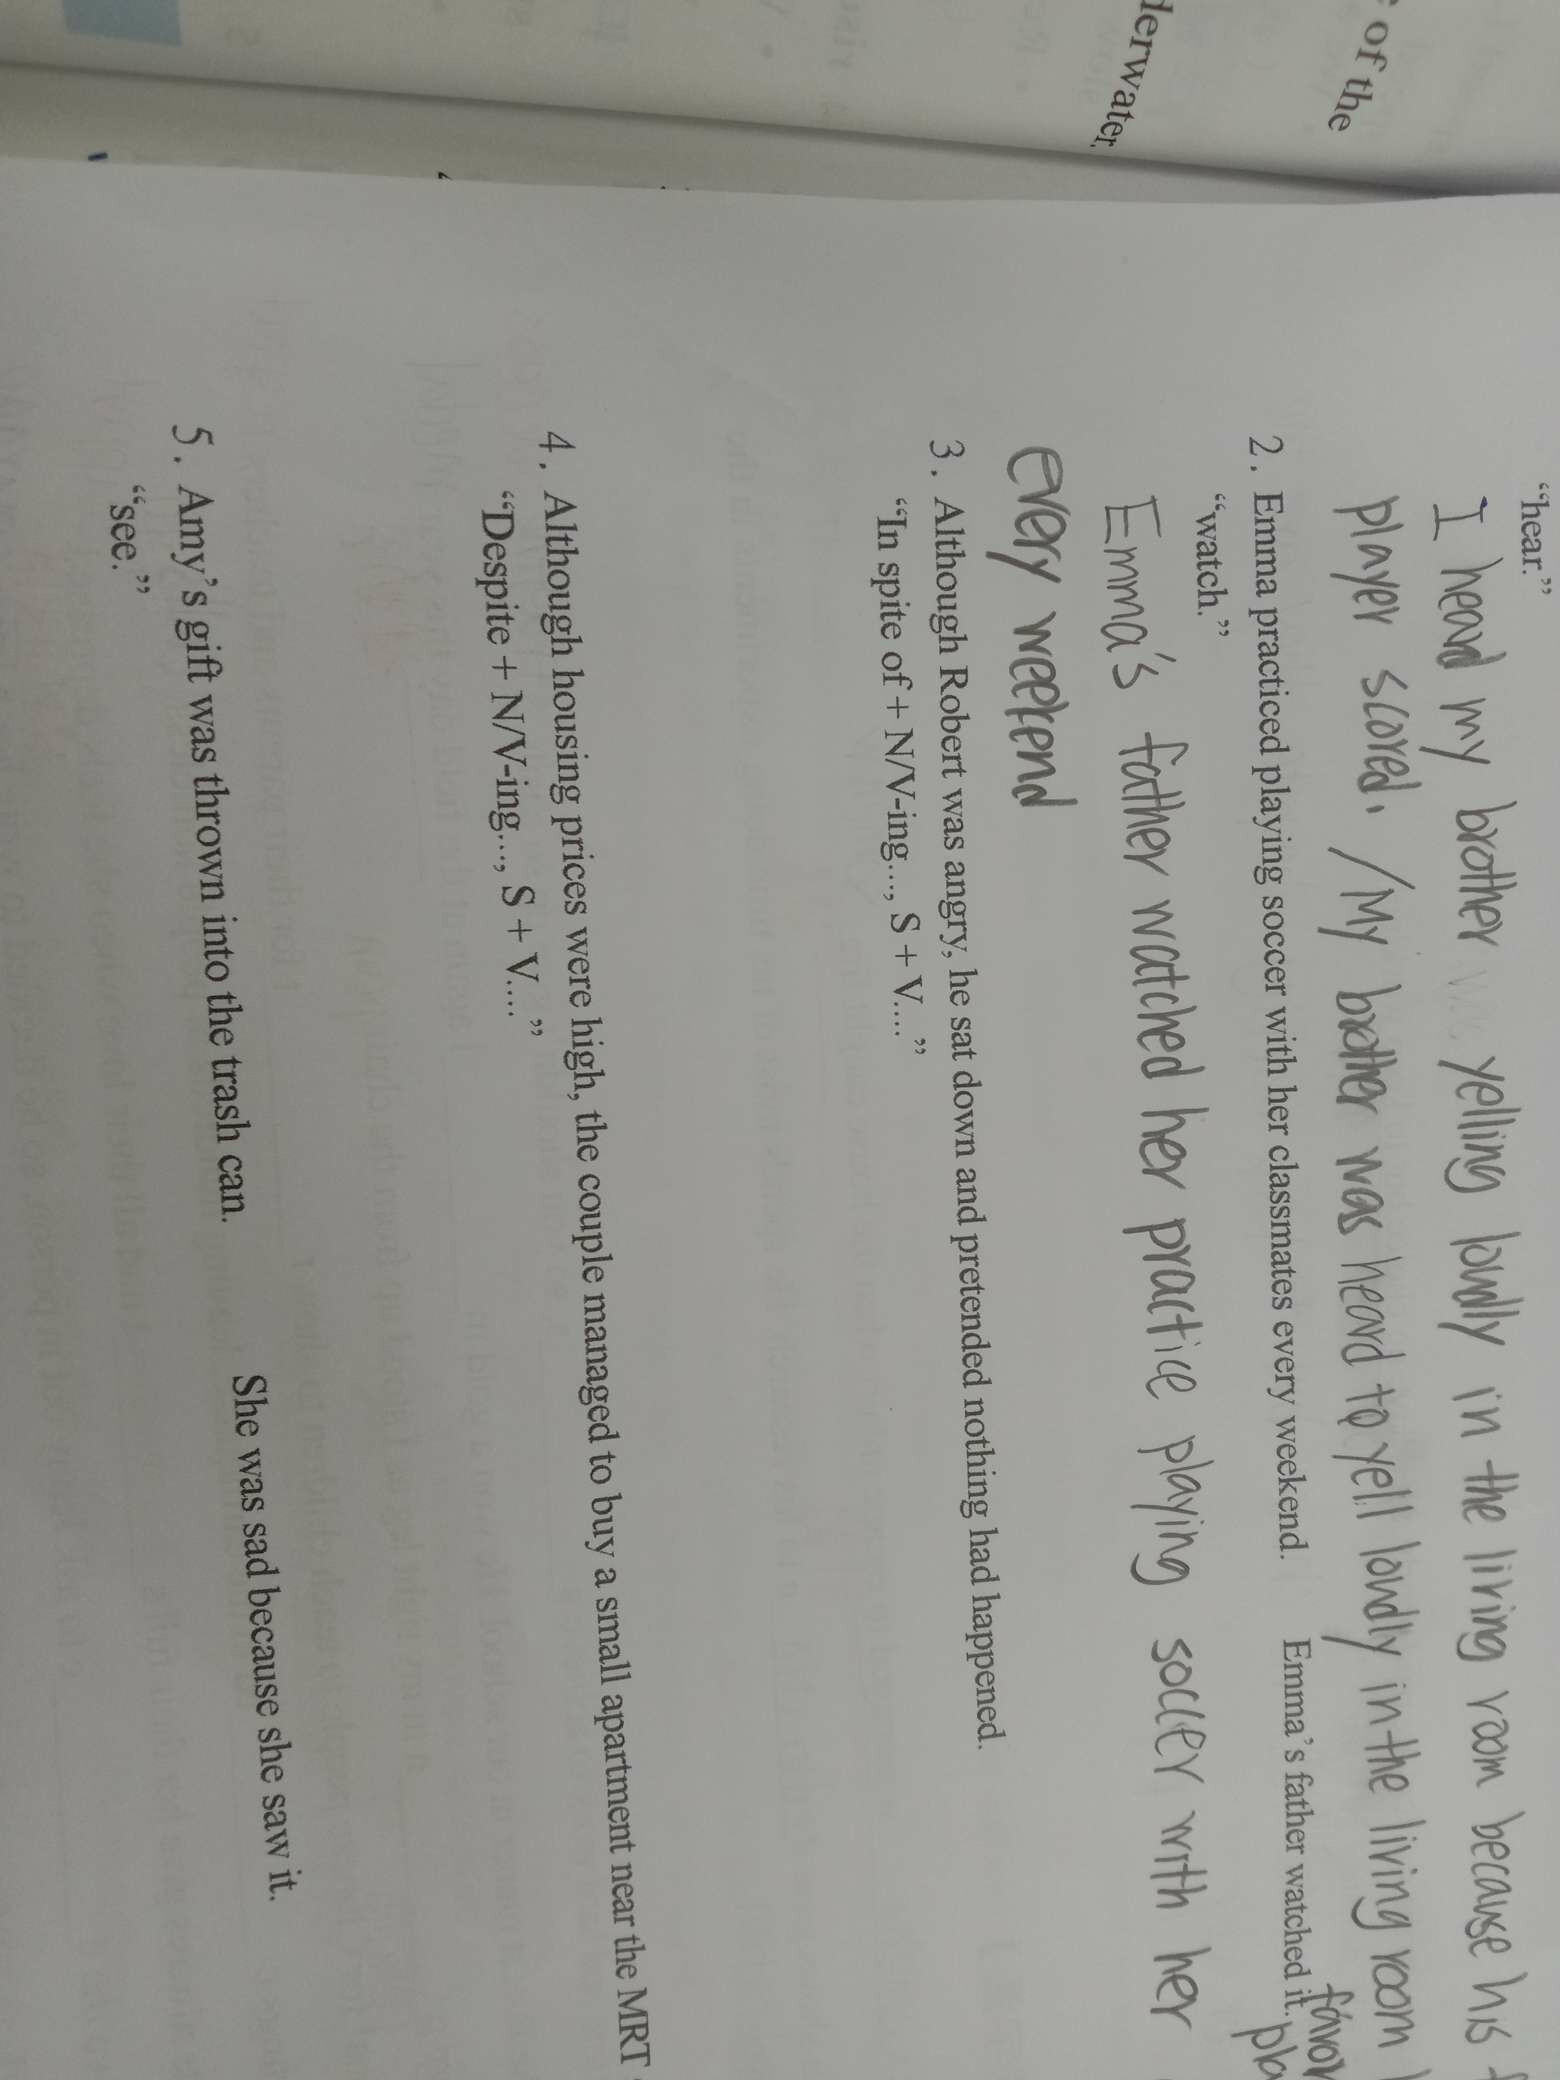 of the
derwater,
“hear.”
I heard my brother yelling loudly in the living room because his
player scored. / My brother was heard to yell loudly in the living room
favor
pla
2. Emma practiced playing soccer with her classmates every weekend. Emma’s father watched it.
“watch.”
Emma's father watched her practice playing soccer with her
every weekend
3. Although Robert was angry, he sat down and pretended nothing had happened.
“In spite of + N/V-ing..., S + V....”
4. Although housing prices were high, the couple managed to buy a small apartment near the MRT
“Despite + N/V-ing..., S + V....”
5. Amy’s gift was thrown into the trash can. She was sad because she saw it.
“see.”